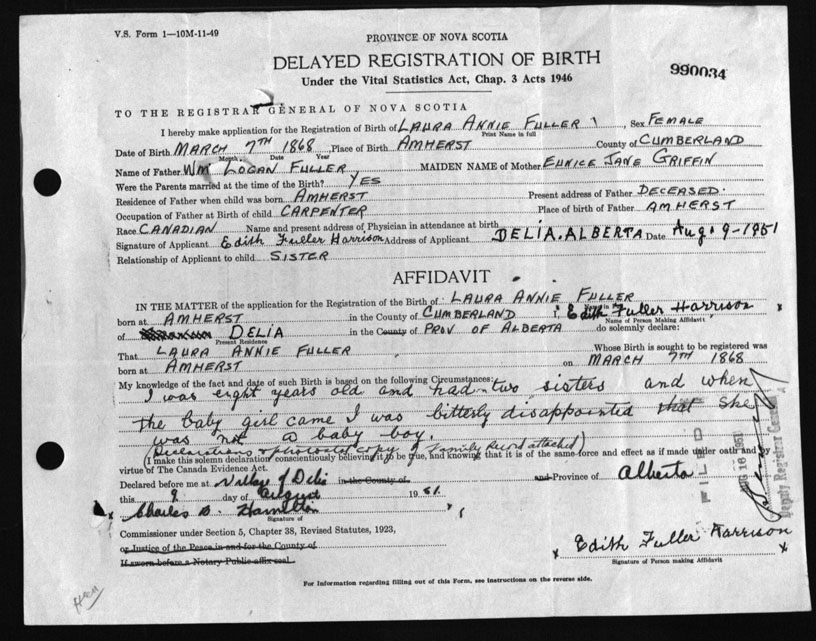 V.S. Form 1—10M-11-49
PROVINCE OF NOVA SCOTIA
DELAYED REGISTRATION OF BIRTH
990034
Under the Vital Statistics Act, Chap. 3 Acts 1946
TO THE REGISTRAR GENERAL OF NOVA SCOTIA
I hereby make application for the Registration of Birth of LAURA ANNIE FULLER, Sex FEMALE
Print Name in full
Date of Birth MARCH 7TH 1868, Place of Birth AMHERST County of CUMBERLAND
Month Date Year
Name of Father WM LOGAN FULLER MAIDEN NAME of Mother EUNICE JANE GRIFFIN
Were the Parents married at the time of the Birth? YES
Residence of Father when child was born AMHERST Present address of Father DECEASED.
Occupation of Father at Birth of child CARPENTER Place of birth of Father AMHERST
Race CANADIAN Name and present address of Physician in attendance at birth
Signature of Applicant Edith Fuller Harrison Address of Applicant DELIA. ALBERTA Date Aug 9-1951
Relationship of Applicant to child SISTER
AFFIDAVIT
IN THE MATTER of the application for the Registration of the Birth of LAURA ANNIE FULLER
born at AMHERST in the County of CUMBERLAND I, Edith Fuller Harrison
Name of Person Making Affidavit
of DELIA in the County of PROV OF ALBERTA do solemnly declare:
Present Residence
That LAURA ANNIE FULLER Whose Birth is sought to be registered was
born at AMHERST on MARCH 7TH 1868
My knowledge of the fact and date of such Birth is based on the following Circumstances:
I was eight years old and had two sisters and when
the baby girl came I was bitterly disappointed that she
was not a baby boy.
(Declarations & photostat copy of Family Record attached)
(I make this solemn declaration conscientiously believing it to be true, and knowing that it is of the same force and effect as if made under oath and by
virtue of The Canada Evidence Act.
Declared before me at Village of Delia in the County of and Province of Alberta
this 9 day of August 1951.
Charles D. Hamilton
Signature of
Commissioner under Section 5, Chapter 38, Revised Statutes, 1923,
or Justice of the Peace in and for the County of
If sworn before a Notary Public affix seal.
Edith Fuller Harrison
Signature of Person making Affidavit
For Information regarding filling out of this Form, see instructions on the reverse side.
FILED
AUG 16 1951
Deputy Registrar General